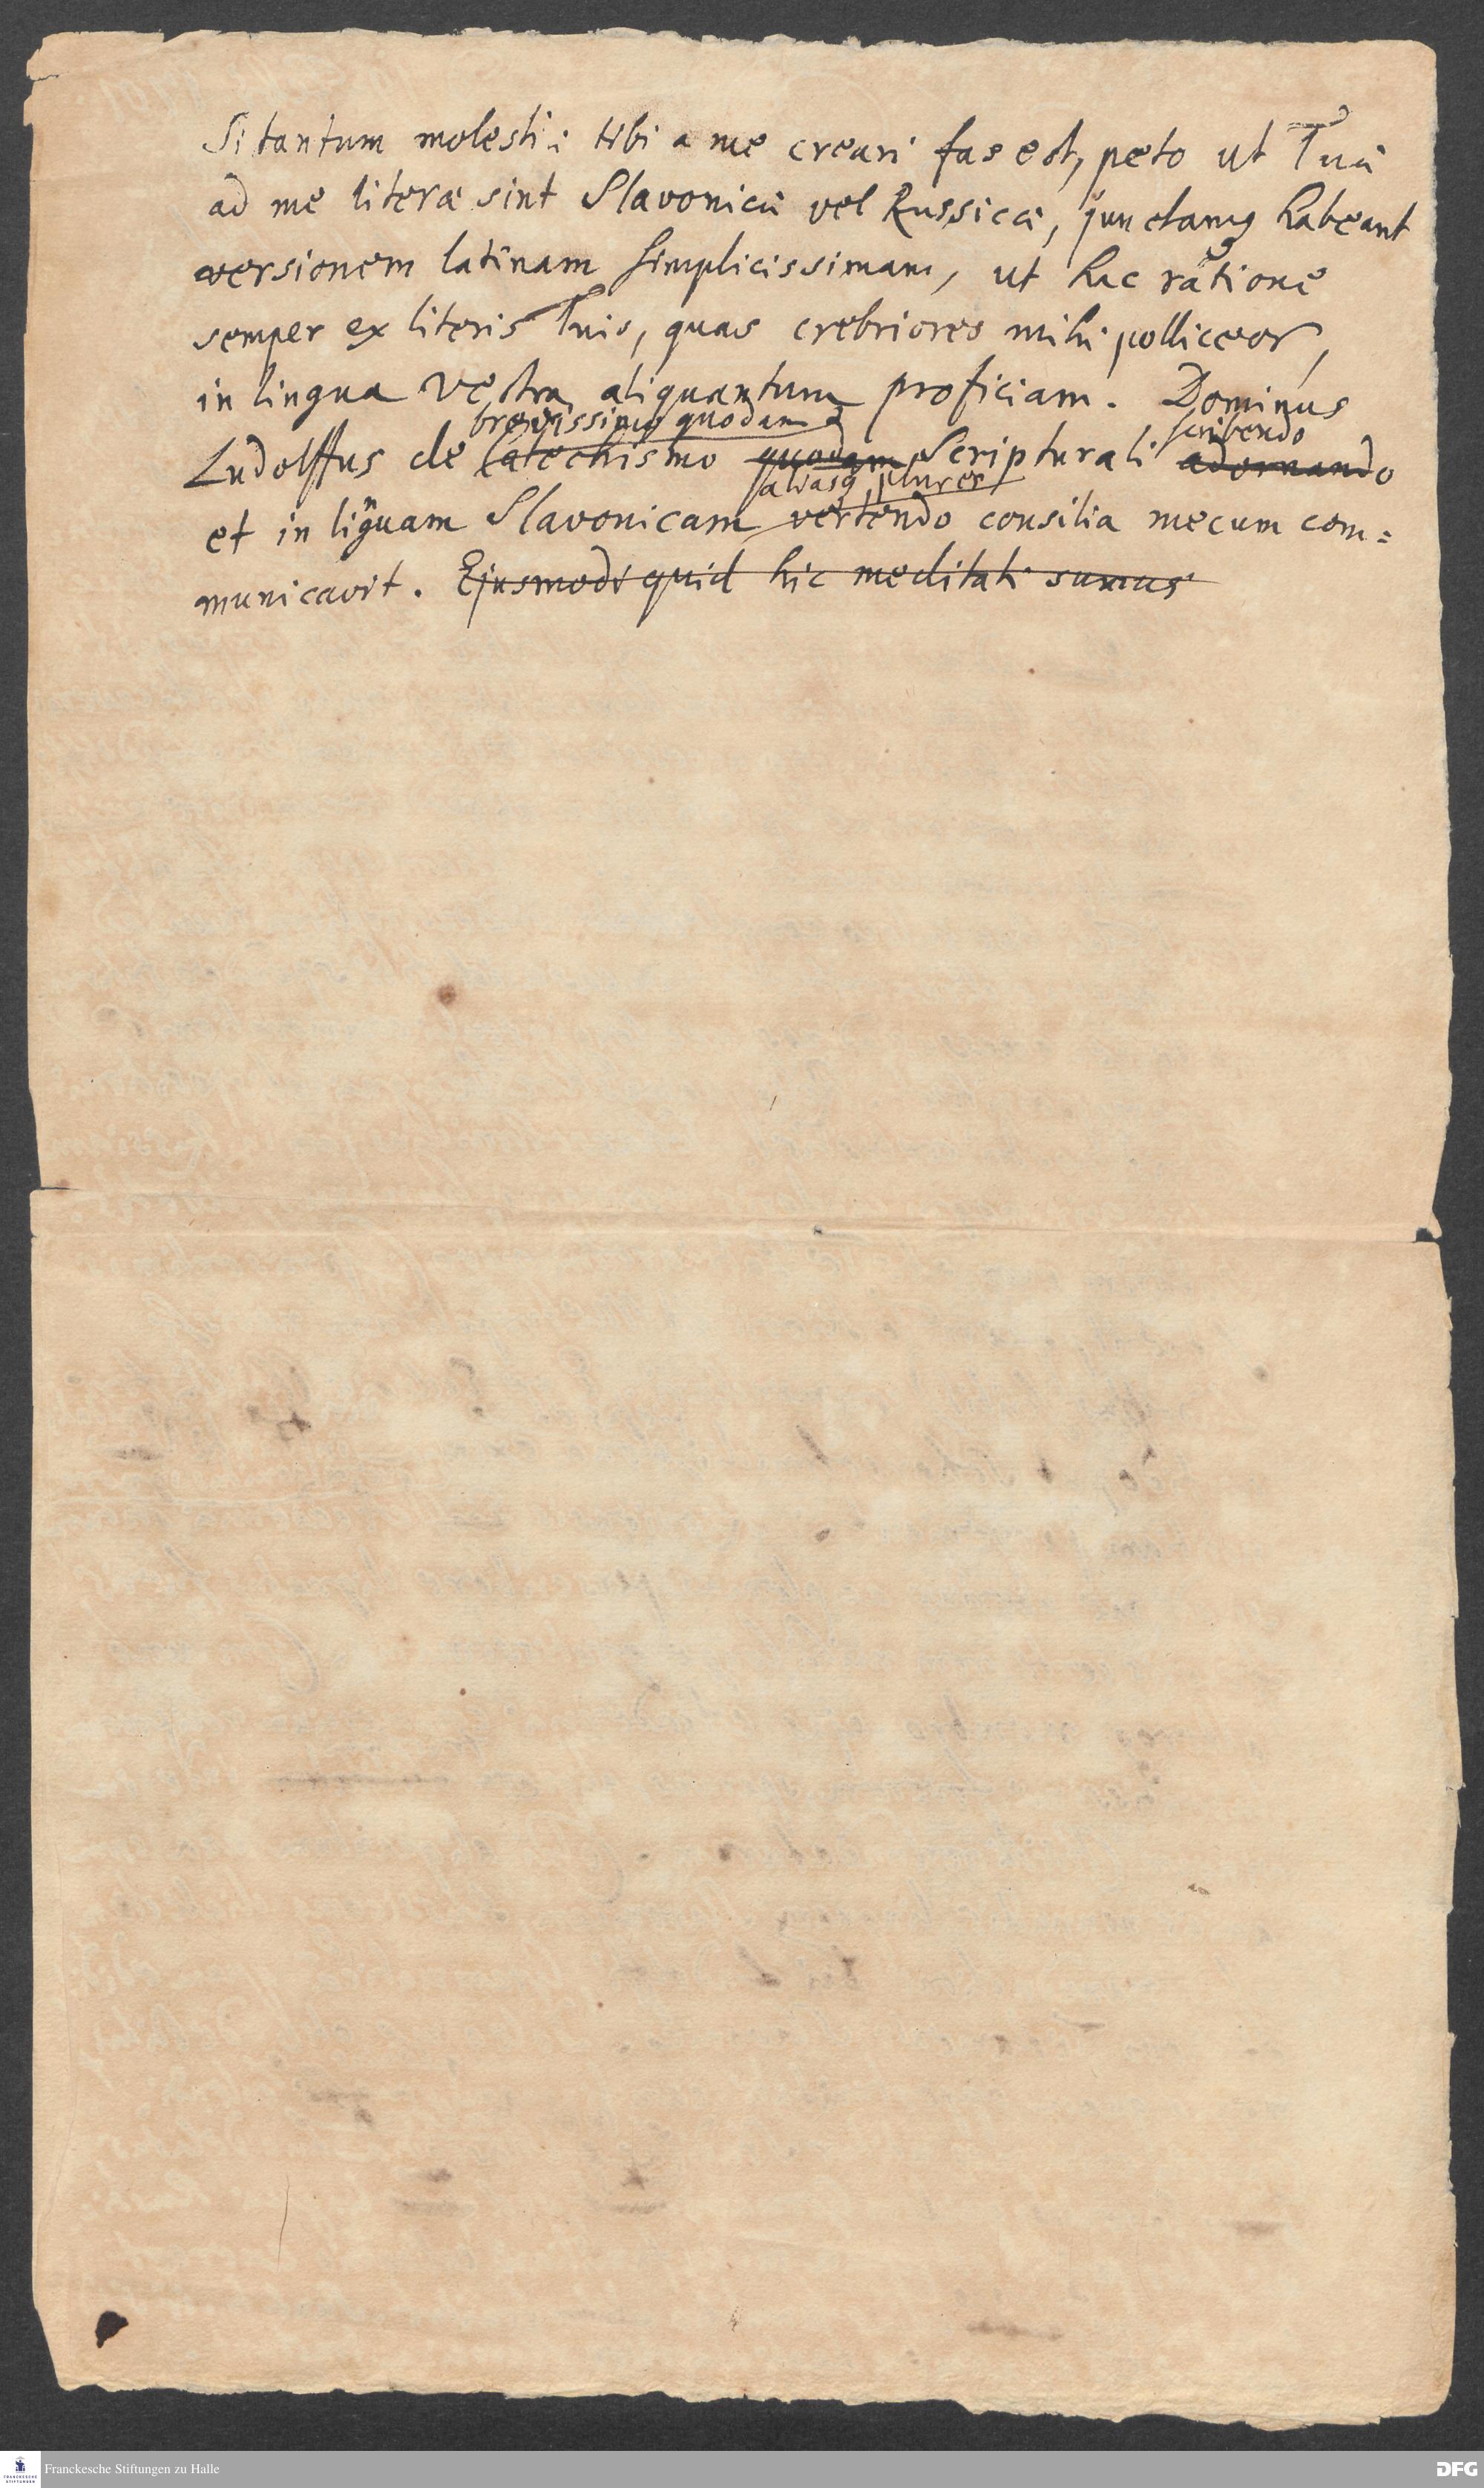 Si tantum molestiæ tibi a me creari fas est, peto ut Tuæ
ad me literæ sint Slavonicæ vel Russicæ, junctamq habeant
versionem latinam simplicissimam, ut hac ratione
semper ex literis Tuis, quas crebriores mihi polliceor,
in lingua Vestra aliquantum proficiam. Dominus
brevissimo quodam & scribendo
Ludolffus de Catechismo quodam Scripturali adornando
aliasq plures
et in linguam Slavonicam vertendo consilia mecum com=
municavit. Ejusmodi quid hic meditati sumus
Franckesche Stiftungen zu Halle
FRANCKESCHE
STIFTUNGEN
DFG